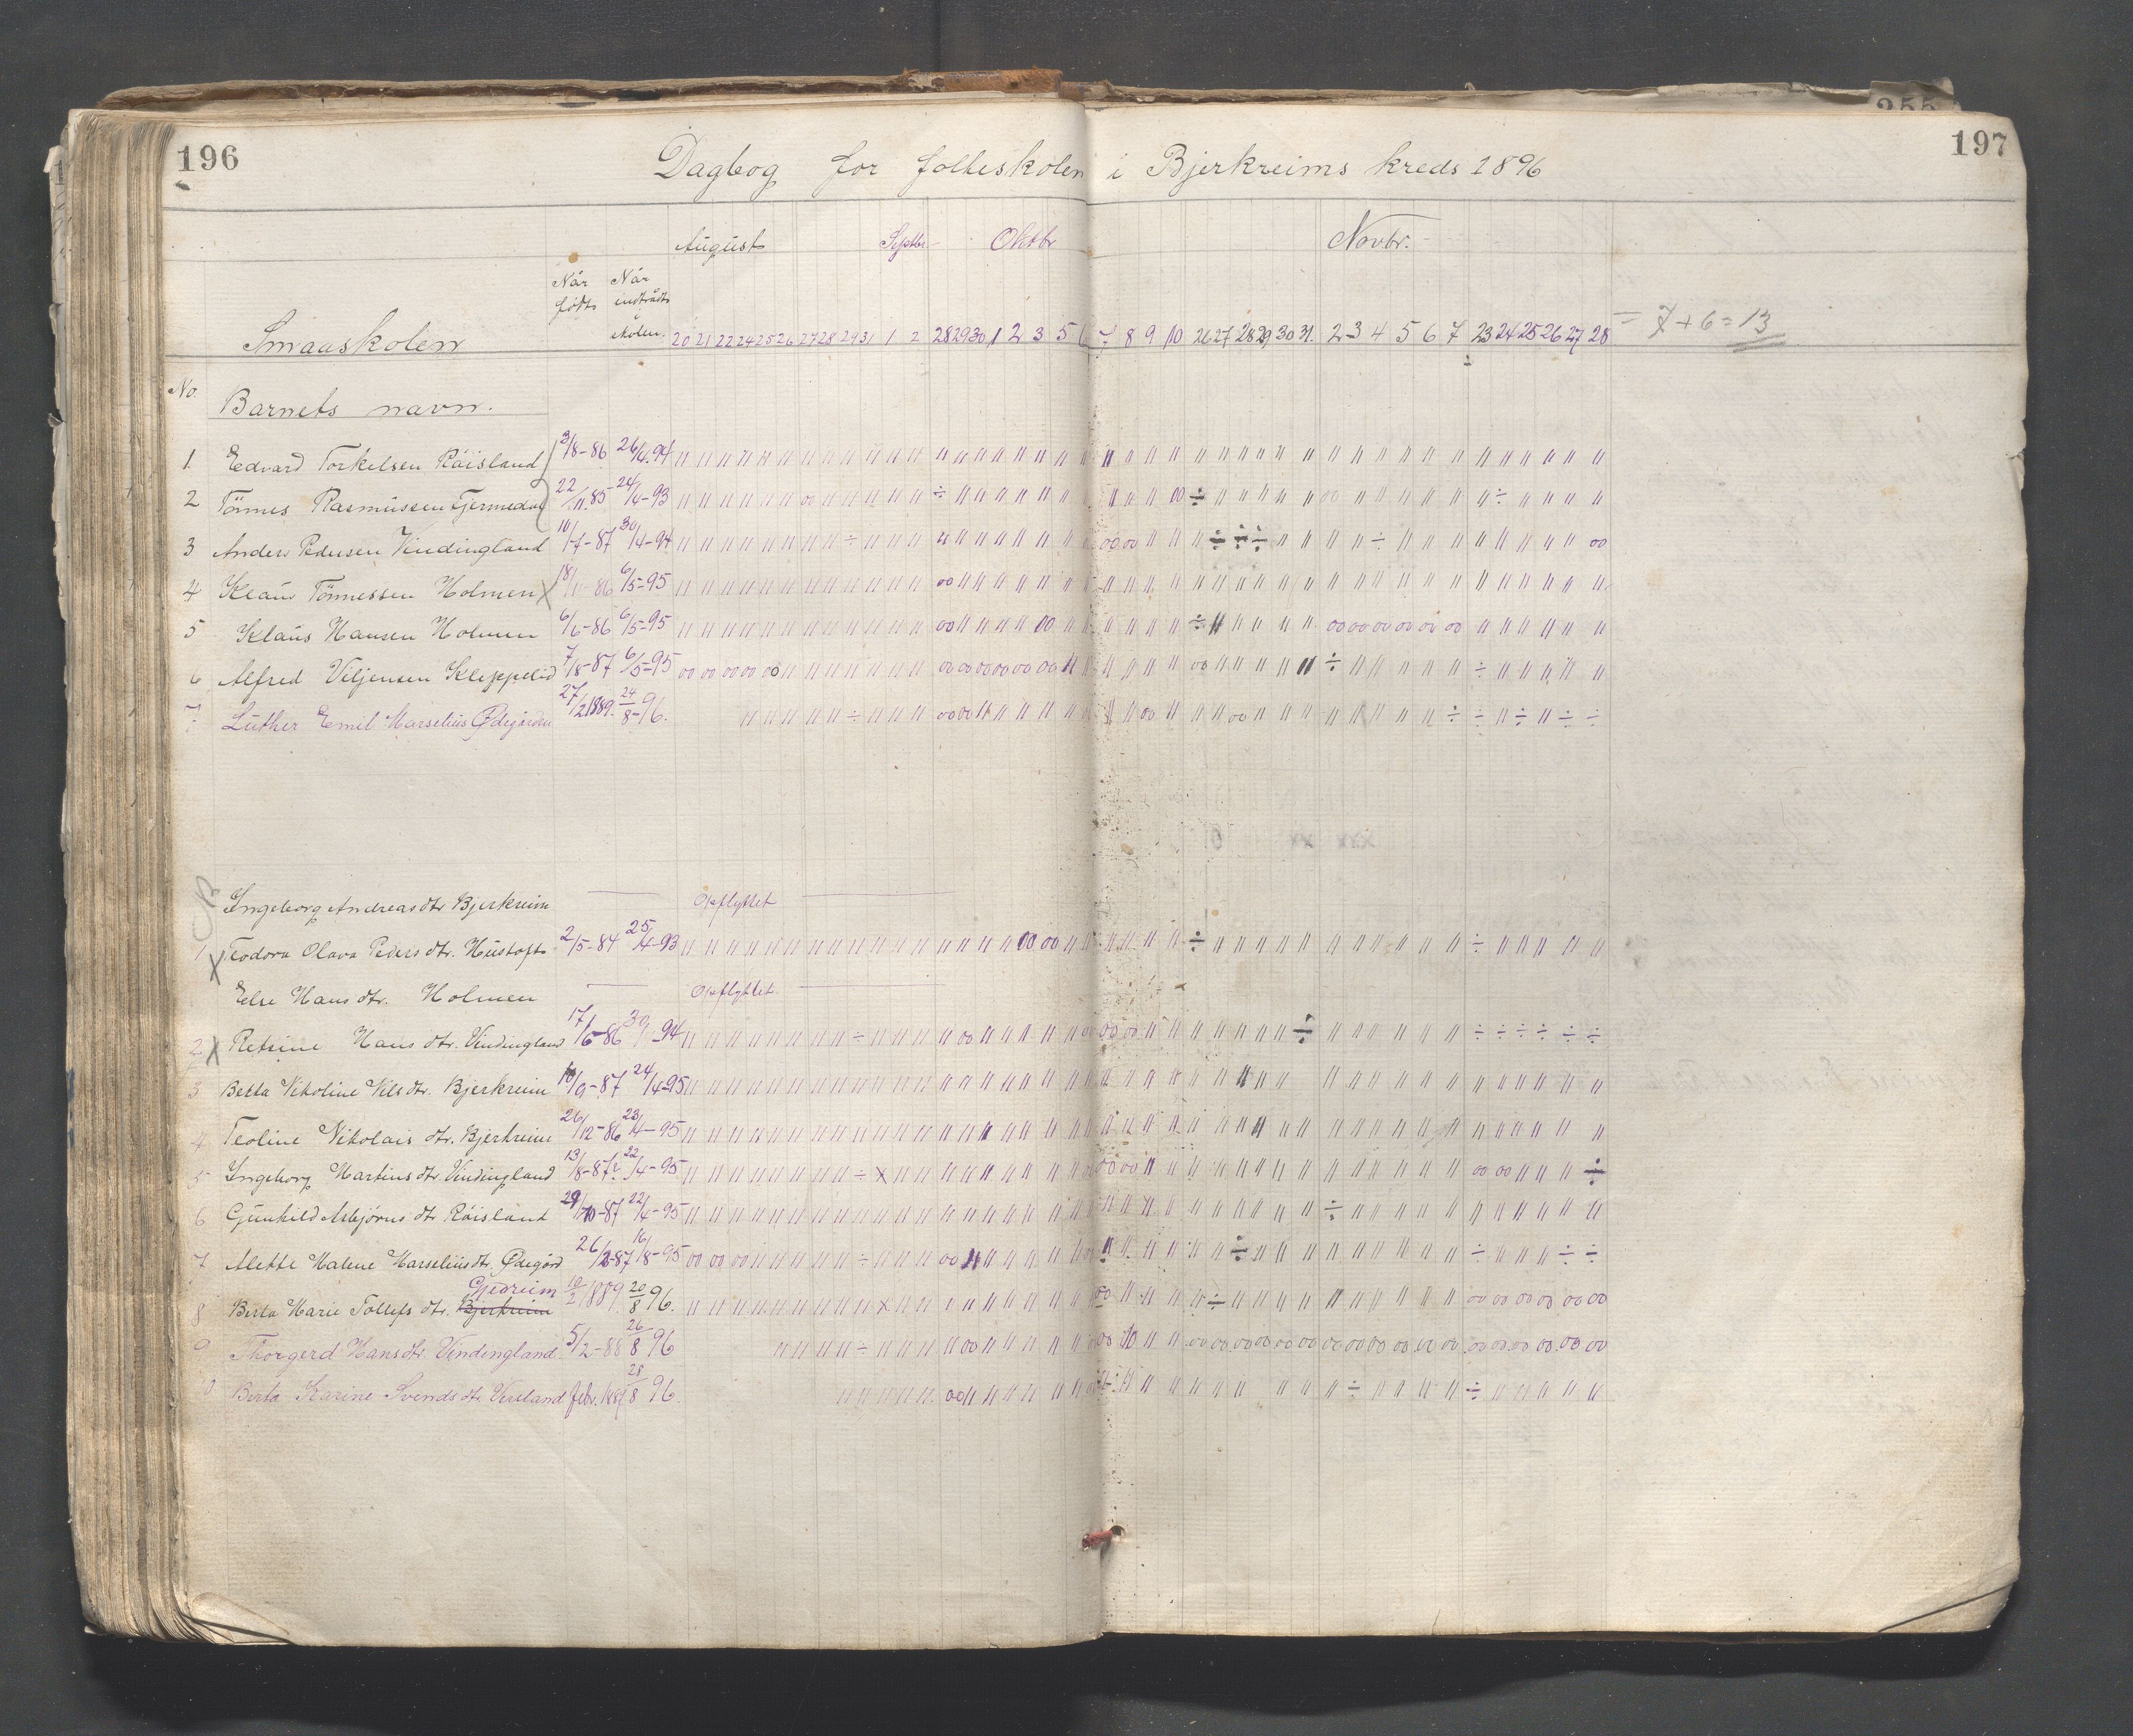 196
197
255
Dagbog for folkeskolen i Bjerkreims kreds 1896
August Septbr. Oktbr Novbr.
Når født Når indtrådt skolen.
Smaaskolen 20 21 22 24 25 26 27 28 29 31 1 2 28 29 30 1 2 3 5 6 7 8 9 10 26 27 28 29 30 31. 2 3 4 5 6 7 23 24 25 26 27 28 = 7 + 6 = 13
No. Barnets navn.
1 Edvard Torkelsen Röisland 3/8-86 26/4-94
2 Tönnes Rasmussen Tjermedal 22/11 85 24/4-93
3 Anders Pedersen Vindingland 10/7-87 30/4-94
4 Klaus Tönnessen Holmen 18/11-86 6/5-95
5 Klaus Hansen Holmen 6/6-86 6/5-95
6 Alfred Viljensen Kleppelid 7/8-87 6/5-95
7 Luther Emil Marselius Ødegården 27/2 1889. 24/8-96.
Ingeborg Andreasdtr Bjerkreim Opflyttet
1 Teodora Olava Pedersdtr. Hustoft 2/5-84 25/4-93
Else Hansdtr. Holmen Opflyttet
2 Retsine Hansdtr. Vindingland 17/6-86 30/ -94
3 Berta Nikoline Nilsdtr. Bjerkreim 10/9-87 24/4-95
4 Teoline Nikolaisdtr. Bjerkreim 26/12-86 23/4-95
5 Ingeborg Martinsdtr. Vindingland 13/8-87 22/4-95
6 Gunhild Asbjørnsdtr Röisland 29/10-87 22/4-95
7 Alette Malene Marseliusdtr. Ødegård 26/2-87 16/8-95
Gjedreim
8 Berta Marie Tollefsdtr. Bjerkreim 10/2 1889. 20/8 96.
9 Thorgerd Hansdtr. Vindingland 5/2-88 26/8 96
10 Berta Karine Svendsdtr. Versland febr. 1889 28/8 96.